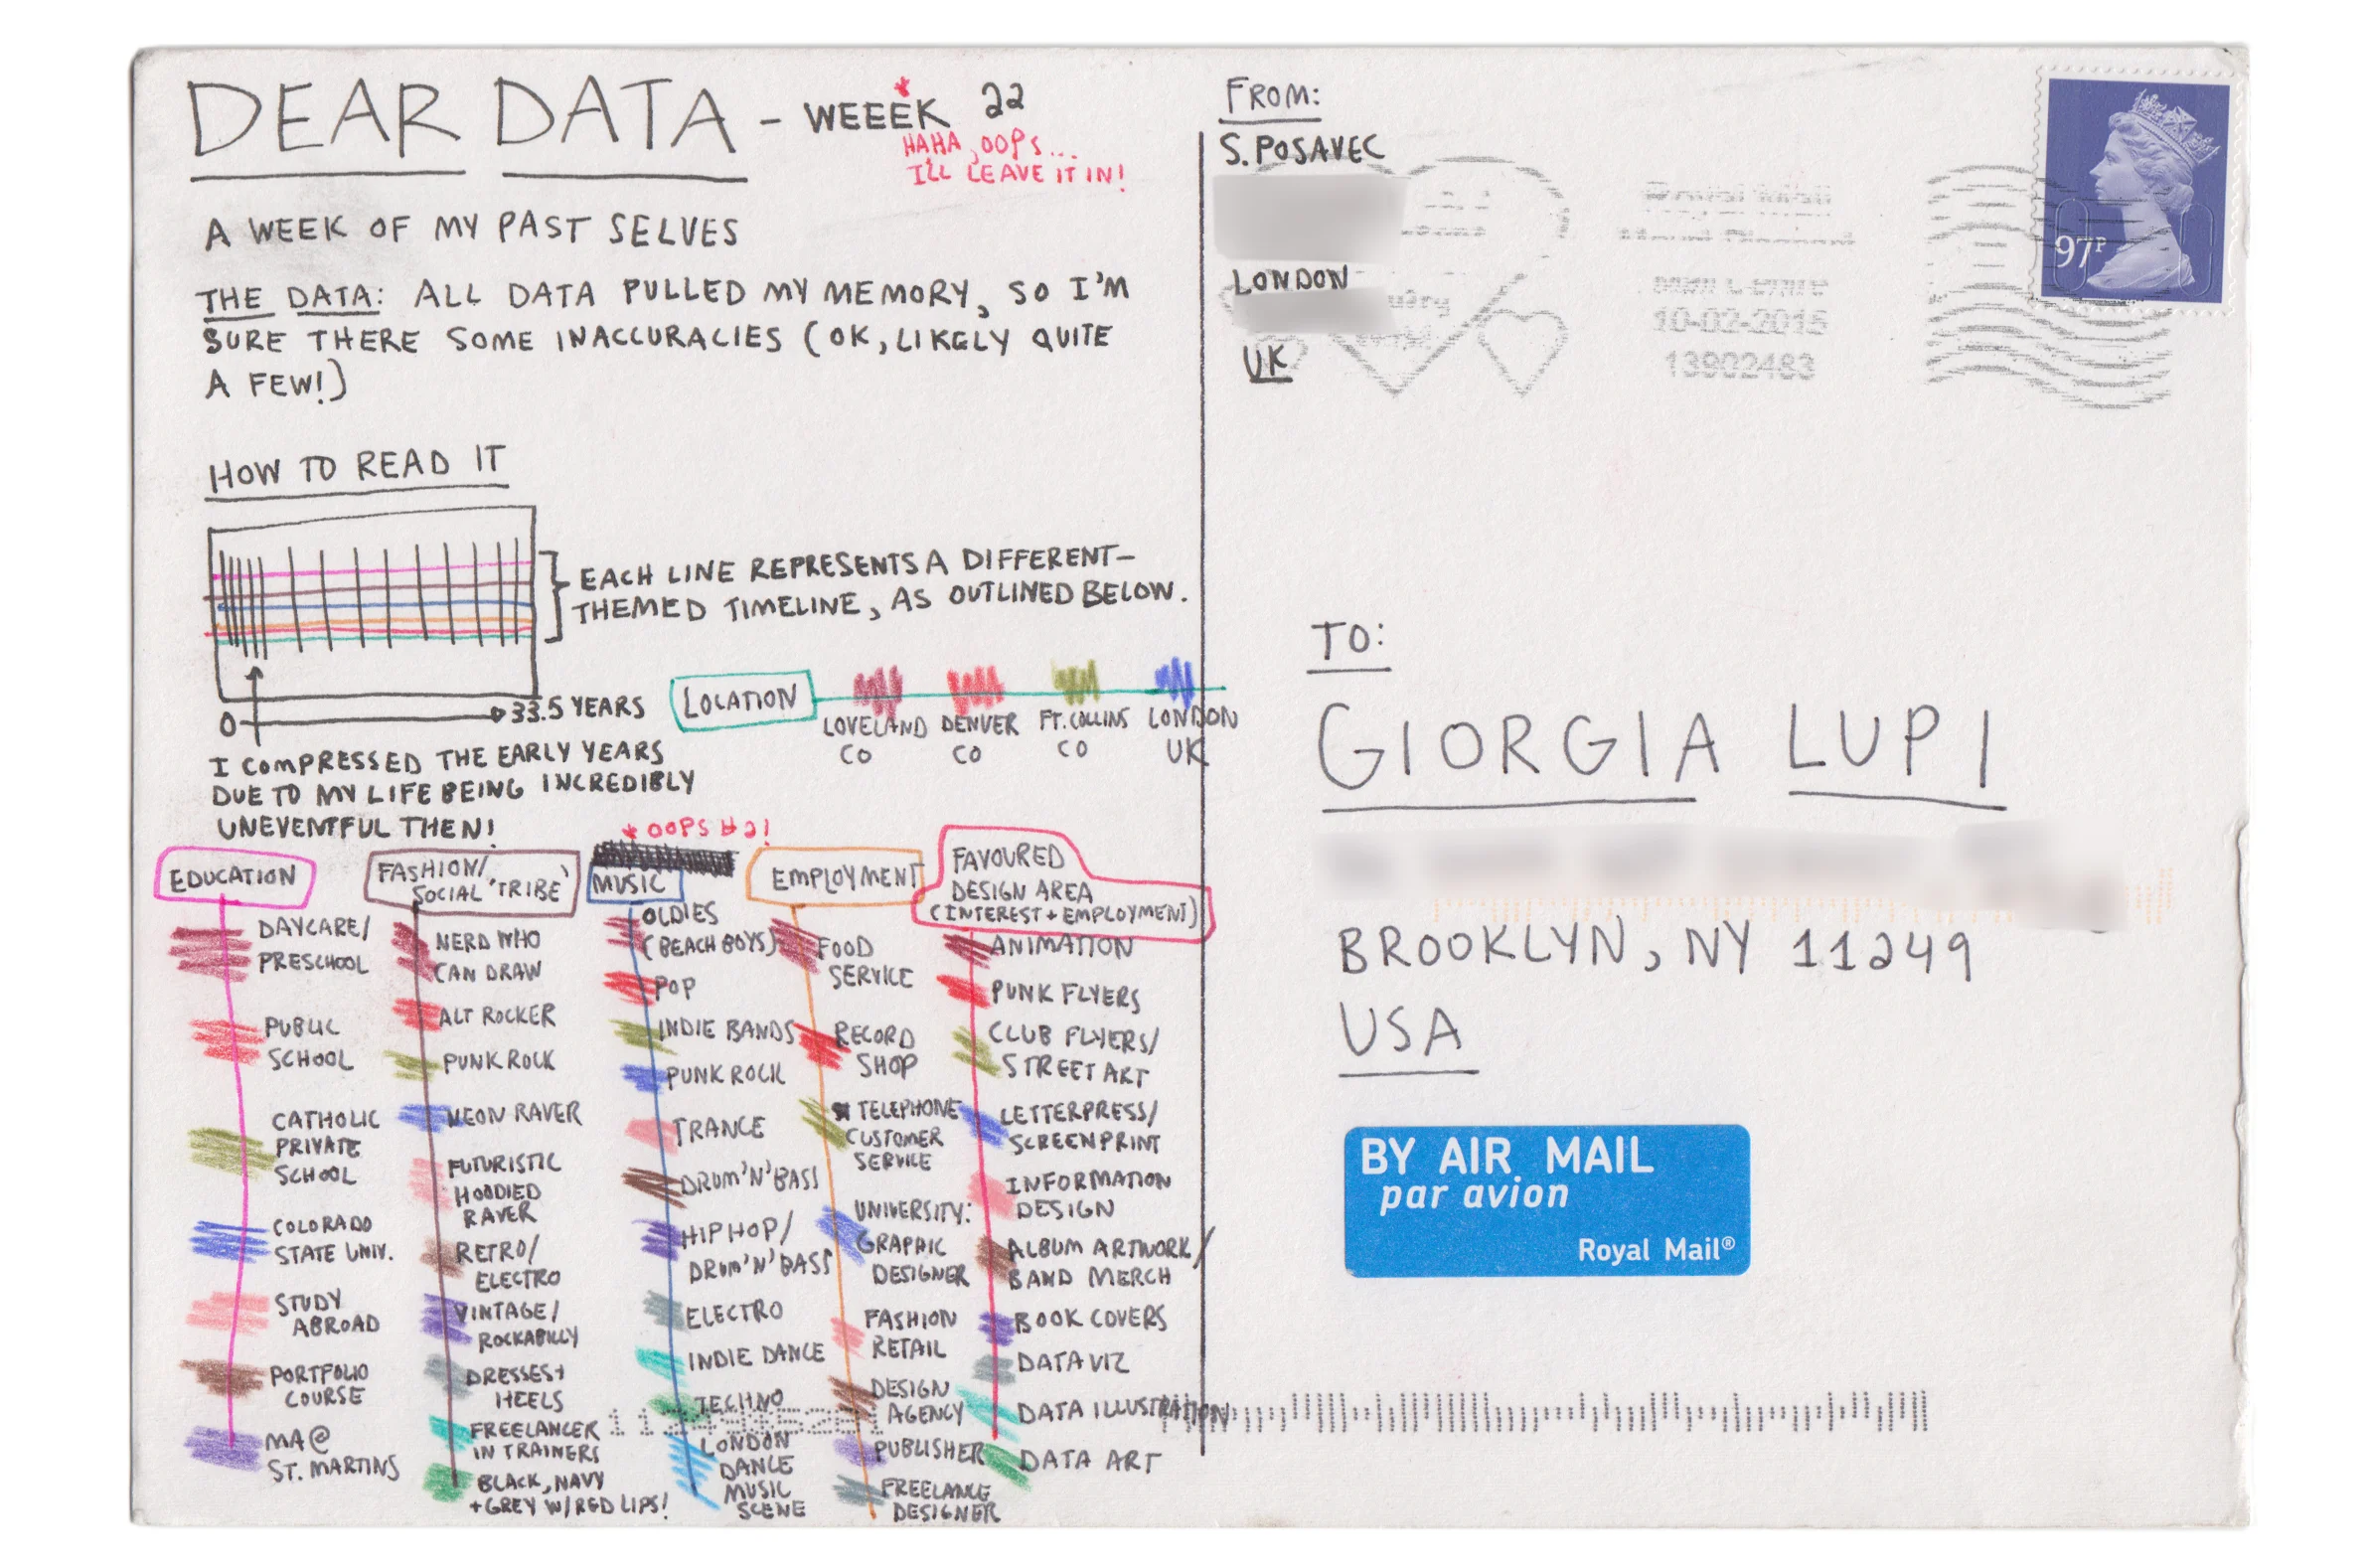 DEAR DATA - WEEEK 22
HAHA, OOPS...
I'LL LEAVE IT IN!
A WEEK OF MY PAST SELVES
THE DATA: ALL DATA PULLED MY MEMORY, SO I'M
SURE THERE SOME INACCURACIES (OK, LIKELY QUITE
A FEW!)
HOW TO READ IT
EACH LINE REPRESENTS A DIFFERENT-
THEMED TIMELINE, AS OUTLINED BELOW.
0
33.5 YEARS
I COMPRESSED THE EARLY YEARS
DUE TO MY LIFE BEING INCREDIBLY
UNEVENTFUL THEN!
LOCATION
LOVELAND
CO
DENVER
CO
FT. COLLINS
CO
LONDON
UK
EDUCATION
DAYCARE/
PRESCHOOL
PUBLIC
SCHOOL
CATHOLIC
PRIVATE
SCHOOL
COLORADO
STATE UNIV.
STUDY
ABROAD
PORTFOLIO
COURSE
MA @
ST. MARTINS
FASHION/
SOCIAL 'TRIBE'
NERD WHO
CAN DRAW
ALT ROCKER
PUNK ROCK
NEON RAVER
FUTURISTIC
HOODIED
RAVER
RETRO/
ELECTRO
VINTAGE/
ROCKABILLY
DRESSES+
HEELS
FREELANCER
IN TRAINERS
BLACK, NAVY
+ GREY W/RED LIPS!
* OOPS #2!
MUSIC
OLDIES
(BEACH BOYS)
POP
INDIE BANDS
PUNK ROCK
TRANCE
DRUM'N'BASS
HIP HOP/
DRUM'N'BASS
ELECTRO
INDIE DANCE
TECHNO
LONDON
DANCE
MUSIC
SCENE
EMPLOYMENT
FOOD
SERVICE
RECORD
SHOP
TELEPHONE
CUSTOMER
SERVICE
UNIVERSITY:
GRAPHIC
DESIGNER
FASHION
RETAIL
DESIGN
AGENCY
PUBLISHER
FREELANCE
DESIGNER
FAVOURED
DESIGN AREA
(INTEREST + EMPLOYMENT)
ANIMATION
PUNK FLYERS
CLUB FLYERS/
STREET ART
LETTERPRESS/
SCREENPRINT
INFORMATION
DESIGN
ALBUM ARTWORK/
BAND MERCH
BOOK COVERS
DATA VIZ
DATA ILLUSTRATION
DATA ART
FROM:
S. POSAVEC
LONDON
UK
Royal Mail
10-02-2015
13902483
97P
TO:
GIORGIA LUPI
BROOKLYN, NY 11249
USA
BY AIR MAIL
par avion
Royal Mail®